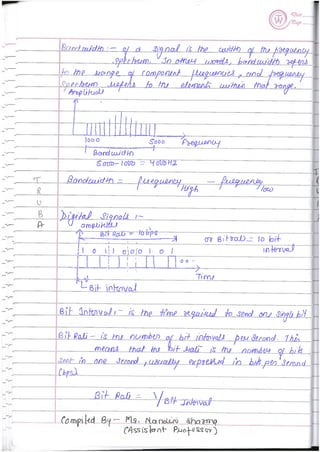 Bandwidth :- of a signal is the width of the frequency
spectrum. In other words, bandwidth refers
to the range of component frequencies, and frequency
spectrum refers to the elements within that range.
Amplitude
1000 5000 Frequency
Bandwidth
5000-1000 = 4000HZ
Bandwidth = frequency high - frequency low
Digital Signals :-
amplitude
Bit Rate = 10 bps
or Bit rate = 10 bit
interval
1 0 1 1 0 0 0 1 0 1
Time
Bit interval
Bit Interval :- is the time required to send one single bit
Bit Rate - is the number of bit intervals per second. This
means that the bit rate is the number of bits
sent in one second, usually expressed in bits per second
(bps)
Bit Rate = 1/Bit Interval
Compiled By:- Ms. Nandini Sharma
(Assistant Professor)
T
R
U
B
A